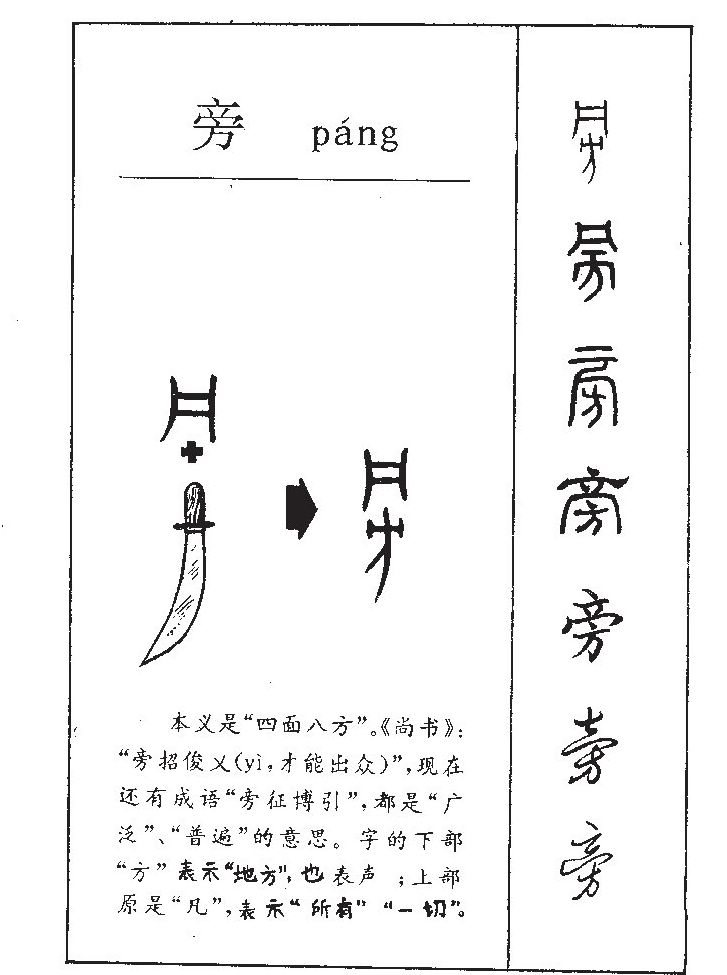 旁 páng
本义是“四面八方”。《尚书》:
“旁招俊乂(yì,才能出众)”,现在
还有成语“旁征博引”,都是“广
泛”、“普遍”的意思。字的下部
“方”表示“地方”,也表声;上部
原是“凡”,表示“所有”“一切”。
旁
旁
旁
旁
旁
旁
旁